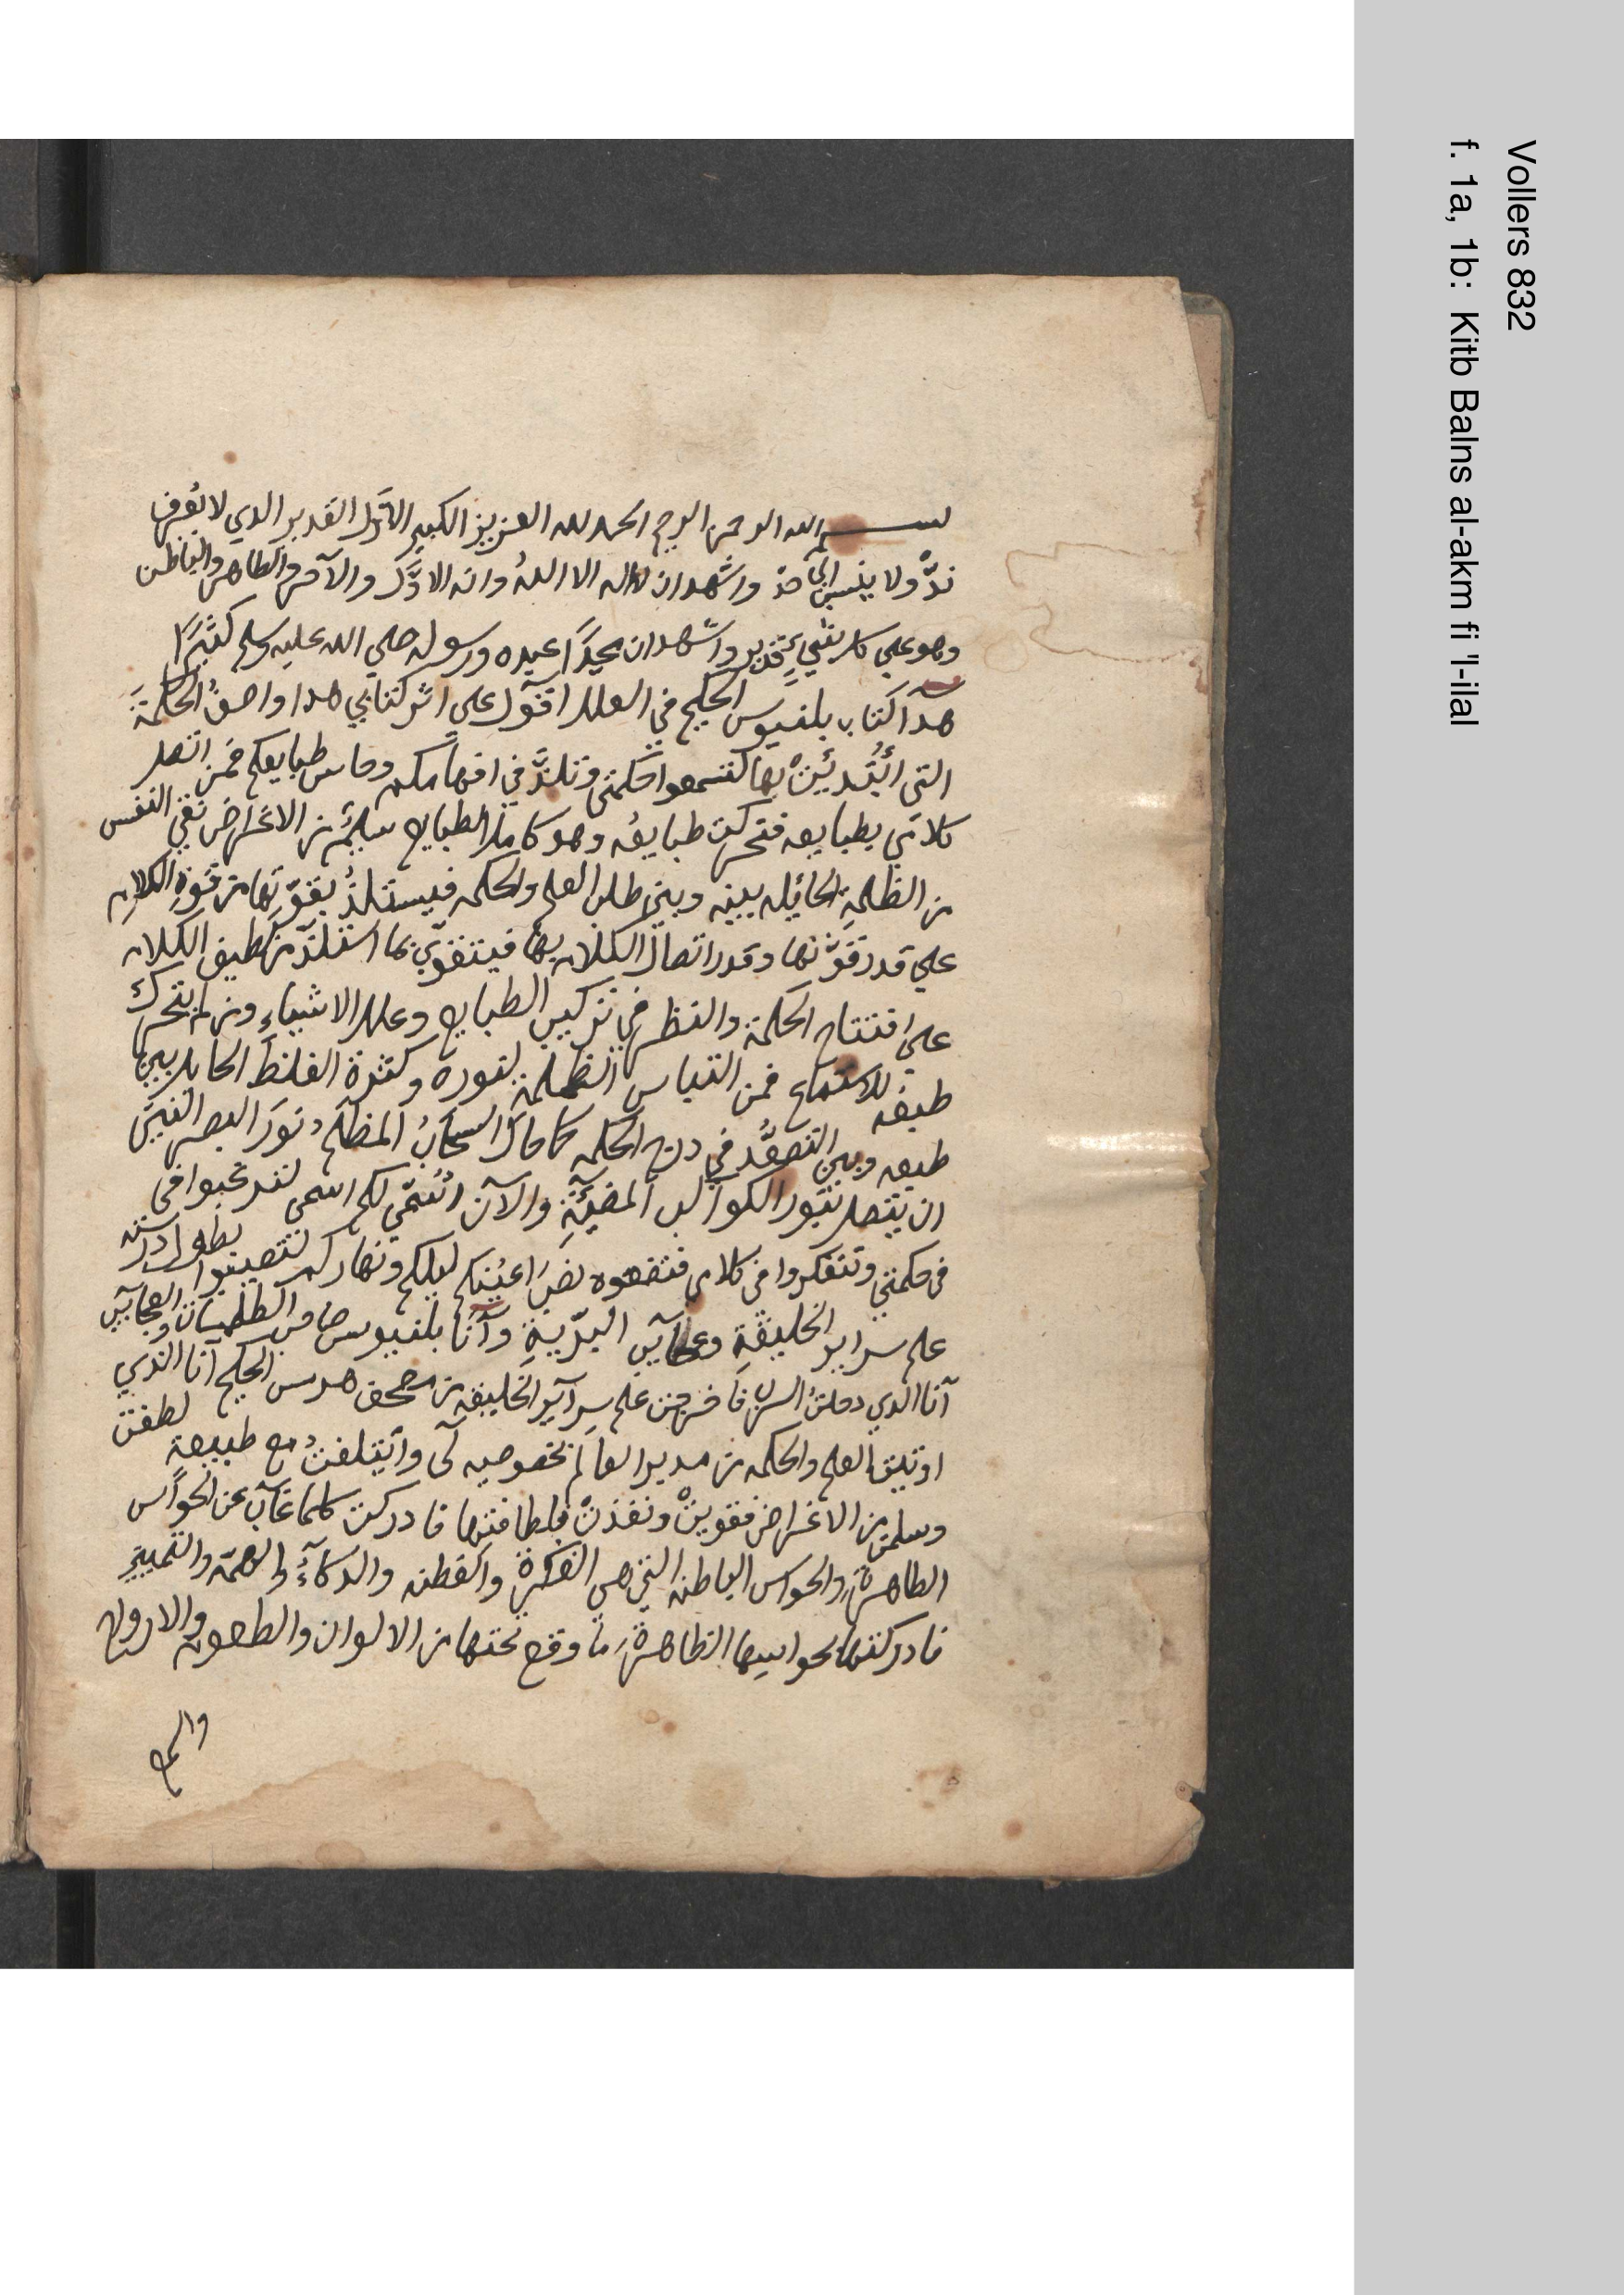 بسم الله الرحمن الرحيم الحمد لله العزيز الكبير الاول القدير الدي لا يُعرف
ندّ ولا ينسب الي حد واشهد ان لا اله الا اللهُ وانه الاوَّل والآخر والظاهر والباطن
وهو علي كل شيءٍ قدير واشهد ان محمدًا عبده ورسوله صلي الله عليه وسلم كثيرًا
هدا كتاب بلنيوس الحكيم في العلل اقول علي اثر كتابي هدا واصفُ الحكمةَ
التي ايُّدتْ بها لتسمعوا حكمتي وتلدّ في افهامكم وحاس طبايعكم فمن اتصل
كلامي بطبايعه فتحركت طبايعُه وهو كامل الطبايع سليمٌ من الاعراض نقي النفس
من الظلمةِ الحايله بينه وبين طلب العلم والحكمه فيستلدُّ بقوّتها من قوةِ الكلام
علي قدر قوّتها وقدر اتصال الكلام بها فيتقوّي بما استلدّ من لطيف الكلام
علي افتتاح الحكمة والنظر في تركيب الطبايع وعلل الاشياءِ ومن لم يتحرك
طبعُه للاستماع فمن التباس الظلمة لنوره وكثرة الغلظ الحايل بين
طبعه وبين التصعُّد في درج الحكمه كما حال السحابُ المظلم نورَ البصر النيّر
ان يتصل بنور الكواكب المضيّئةِ والآن اسمّي لكم اسمي لترغبوا في
في حكمتي وتتفكروا في كلامي فتضعوه نصبَ اعينكم ليلكم ونهاركم لتصيبوا بطول دراسته
علم سراير الخليقةِ وعجايب البرّيةِ وأنا بلنيوس صاحب الطلسمات والعجايب
أنا الدي دخلتُ السرب فأخرجت علم سرآير الخليقه من مصحف هرمس الحكيم أنا الدي
اوتيت العلم والحكمه من مدبر العالم بخصوصيه لي وايتلفتُ مع طبيعة لطفت
وسلمت من الاعراض فقويتْ ونفذتْ بلطافتها فادركت كلما غاب عن الحواس
الظاهرة والحواس الباطنه التي هي الفكرة والفطنه والدكاءُ والهمّه والتمييز
فادركتها بحواسها الظاهرة ما وقع تحتها من الالوان والطعوم والارواح